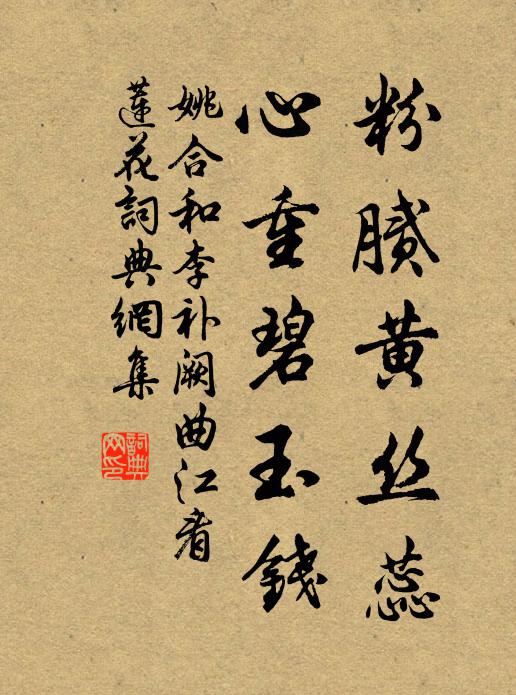 粉膩黄丝蕊
心重碧玉錢
姚合和李补闕曲江看
蓮花詞典網集
詞典网印